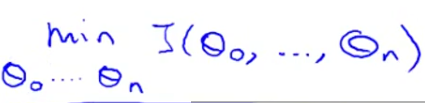 min J(θ₀, ..., θₙ)
θ₀ .... θₙ